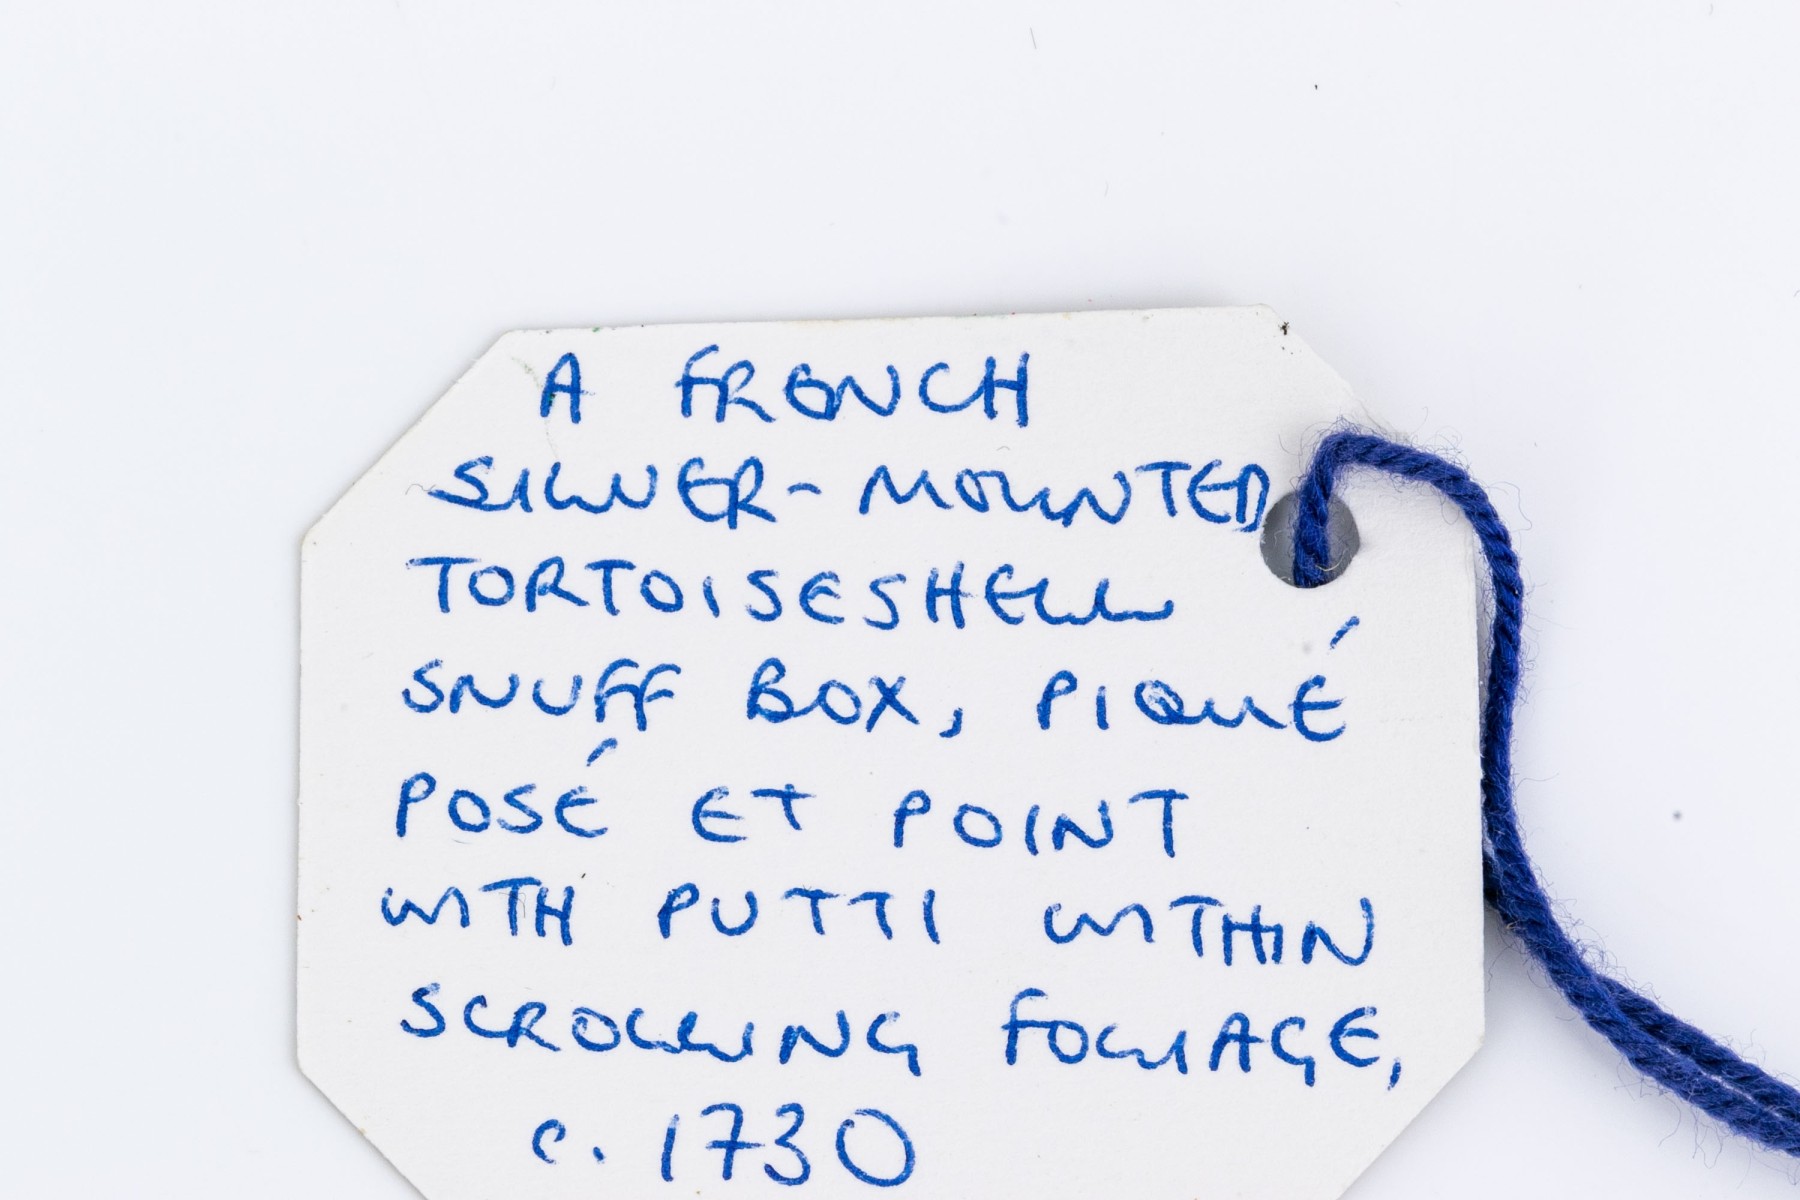 A FRENCH
SILVER-MOUNTED
TORTOISESHELL
SNUFF BOX, PIQUÉ
POSÉ ET POINT
WITH PUTTI WITHIN
SCROLLING FOLIAGE,
c. 1730